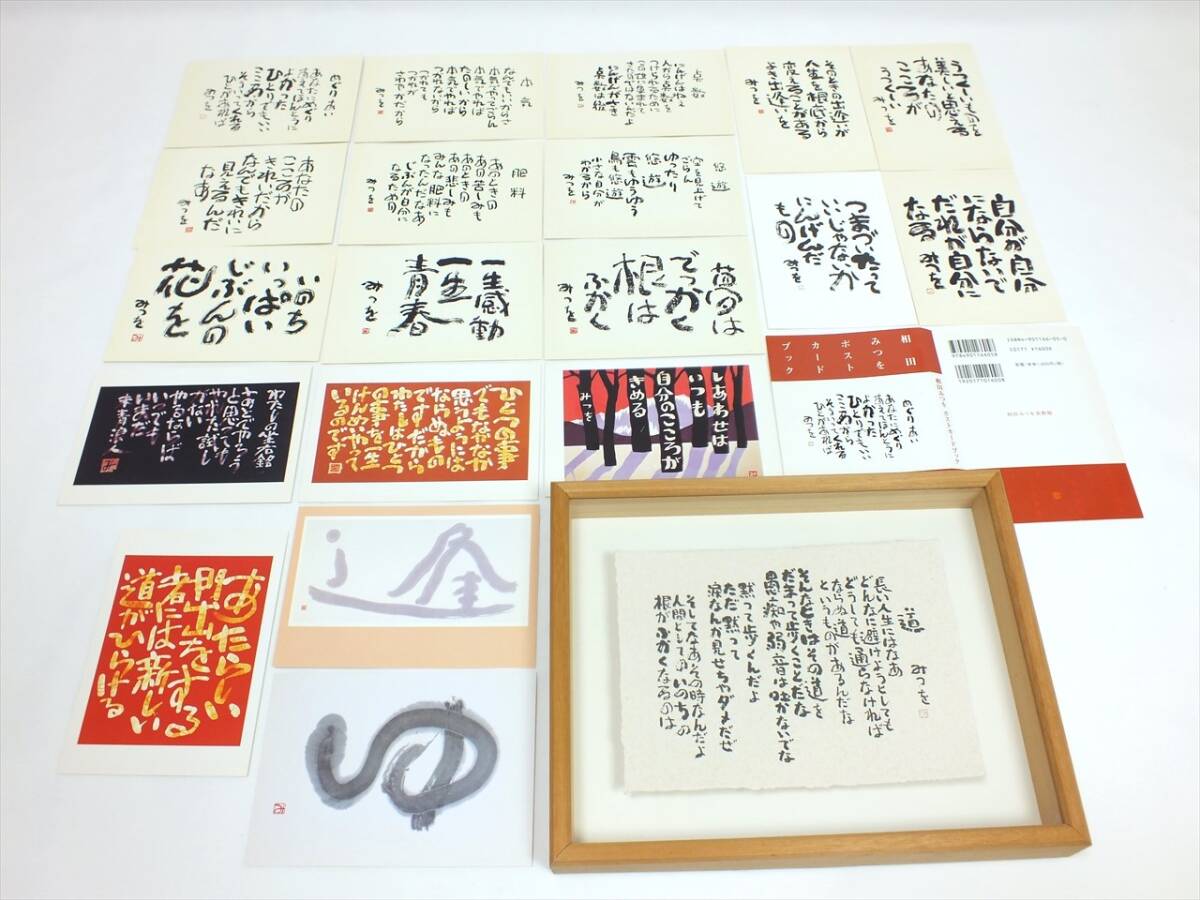 めぐりあい
あなたにめぐり
あえてほんとうに
よかった
ひとりでもいい
こころから
そういってくれる
ひとがあれば
みつを
本気
なんでもいいからさ
本気でやってごらん
本気でやれば
たのしいから
本気でやれば
つかれないから
つかれても
つかれが
さわやかだから
みつを
点数
にんげんはねぇ
人から点数を
つけられるために
この世に生まれて
きたのではないんだよ
にんげんがさき
点数は後
みつを
そのときの出逢いが
人生を根底から
変えることがある
よき出逢いを
みつを
うつくしいものを
美しいと思える
あなたの
こころが
うつくしい
みつを
あなたの
こころが
きれいだから
なんでもきれいに
見えるんだ
なあ
みつを
肥料
あのときの
あの苦しみも
あのときの
あの悲しみも
みんな肥料に
なったんだなあ
じぶんが自分に
なるための
みつを
悠遊
空を見上げて
ごらん
ゆったり
悠遊
雲もゆうゆう
鳥も悠遊
小さな自分が
わかるから
みつを
つまづいたって
いいじゃないか
にんげんだ
もの
みつを
自分が自分
にならないで
だれが自分に
なる
みつを
いのち
いっぱい
じぶんの
花を
みつを
一生感動
一生
青春
みつを
夢は
でっかく
根は
ふかく
みつを
相田
みつを
ポスト
カード
ブック
相田みつを ポストカードブック
めぐりあい
あなたにめぐり
あえてほんとうに
よかった
ひとりでもいい
こころから
そういってくれる
ひとがあれば
みつを
相田みつを美術館
わたしの座右銘
ひとつの事
でもなかなか
思うようには
ならぬもの
ですだから
わたしはひとつ
の事を一生
けんめいやって
いるのです
しあわせは
いつも
自分のこころが
きめる
みつを
あたらしい
門出をする
者には新しい
道がひらける
逢
ゆ
道
長い人生にはなあ
どんなに避けようとしても
どうしても通らなければ
ならぬ道
というものがあるんだな
そんなときはその道を
だまって歩くことだな
愚痴や弱音は吐かないでな
黙って歩くんだよ
ただ黙って
涙なんか見せちゃダメだぜ
そしてなあその時なんだよ
人間としてのいのちの
根がふかくなるのは
みつを